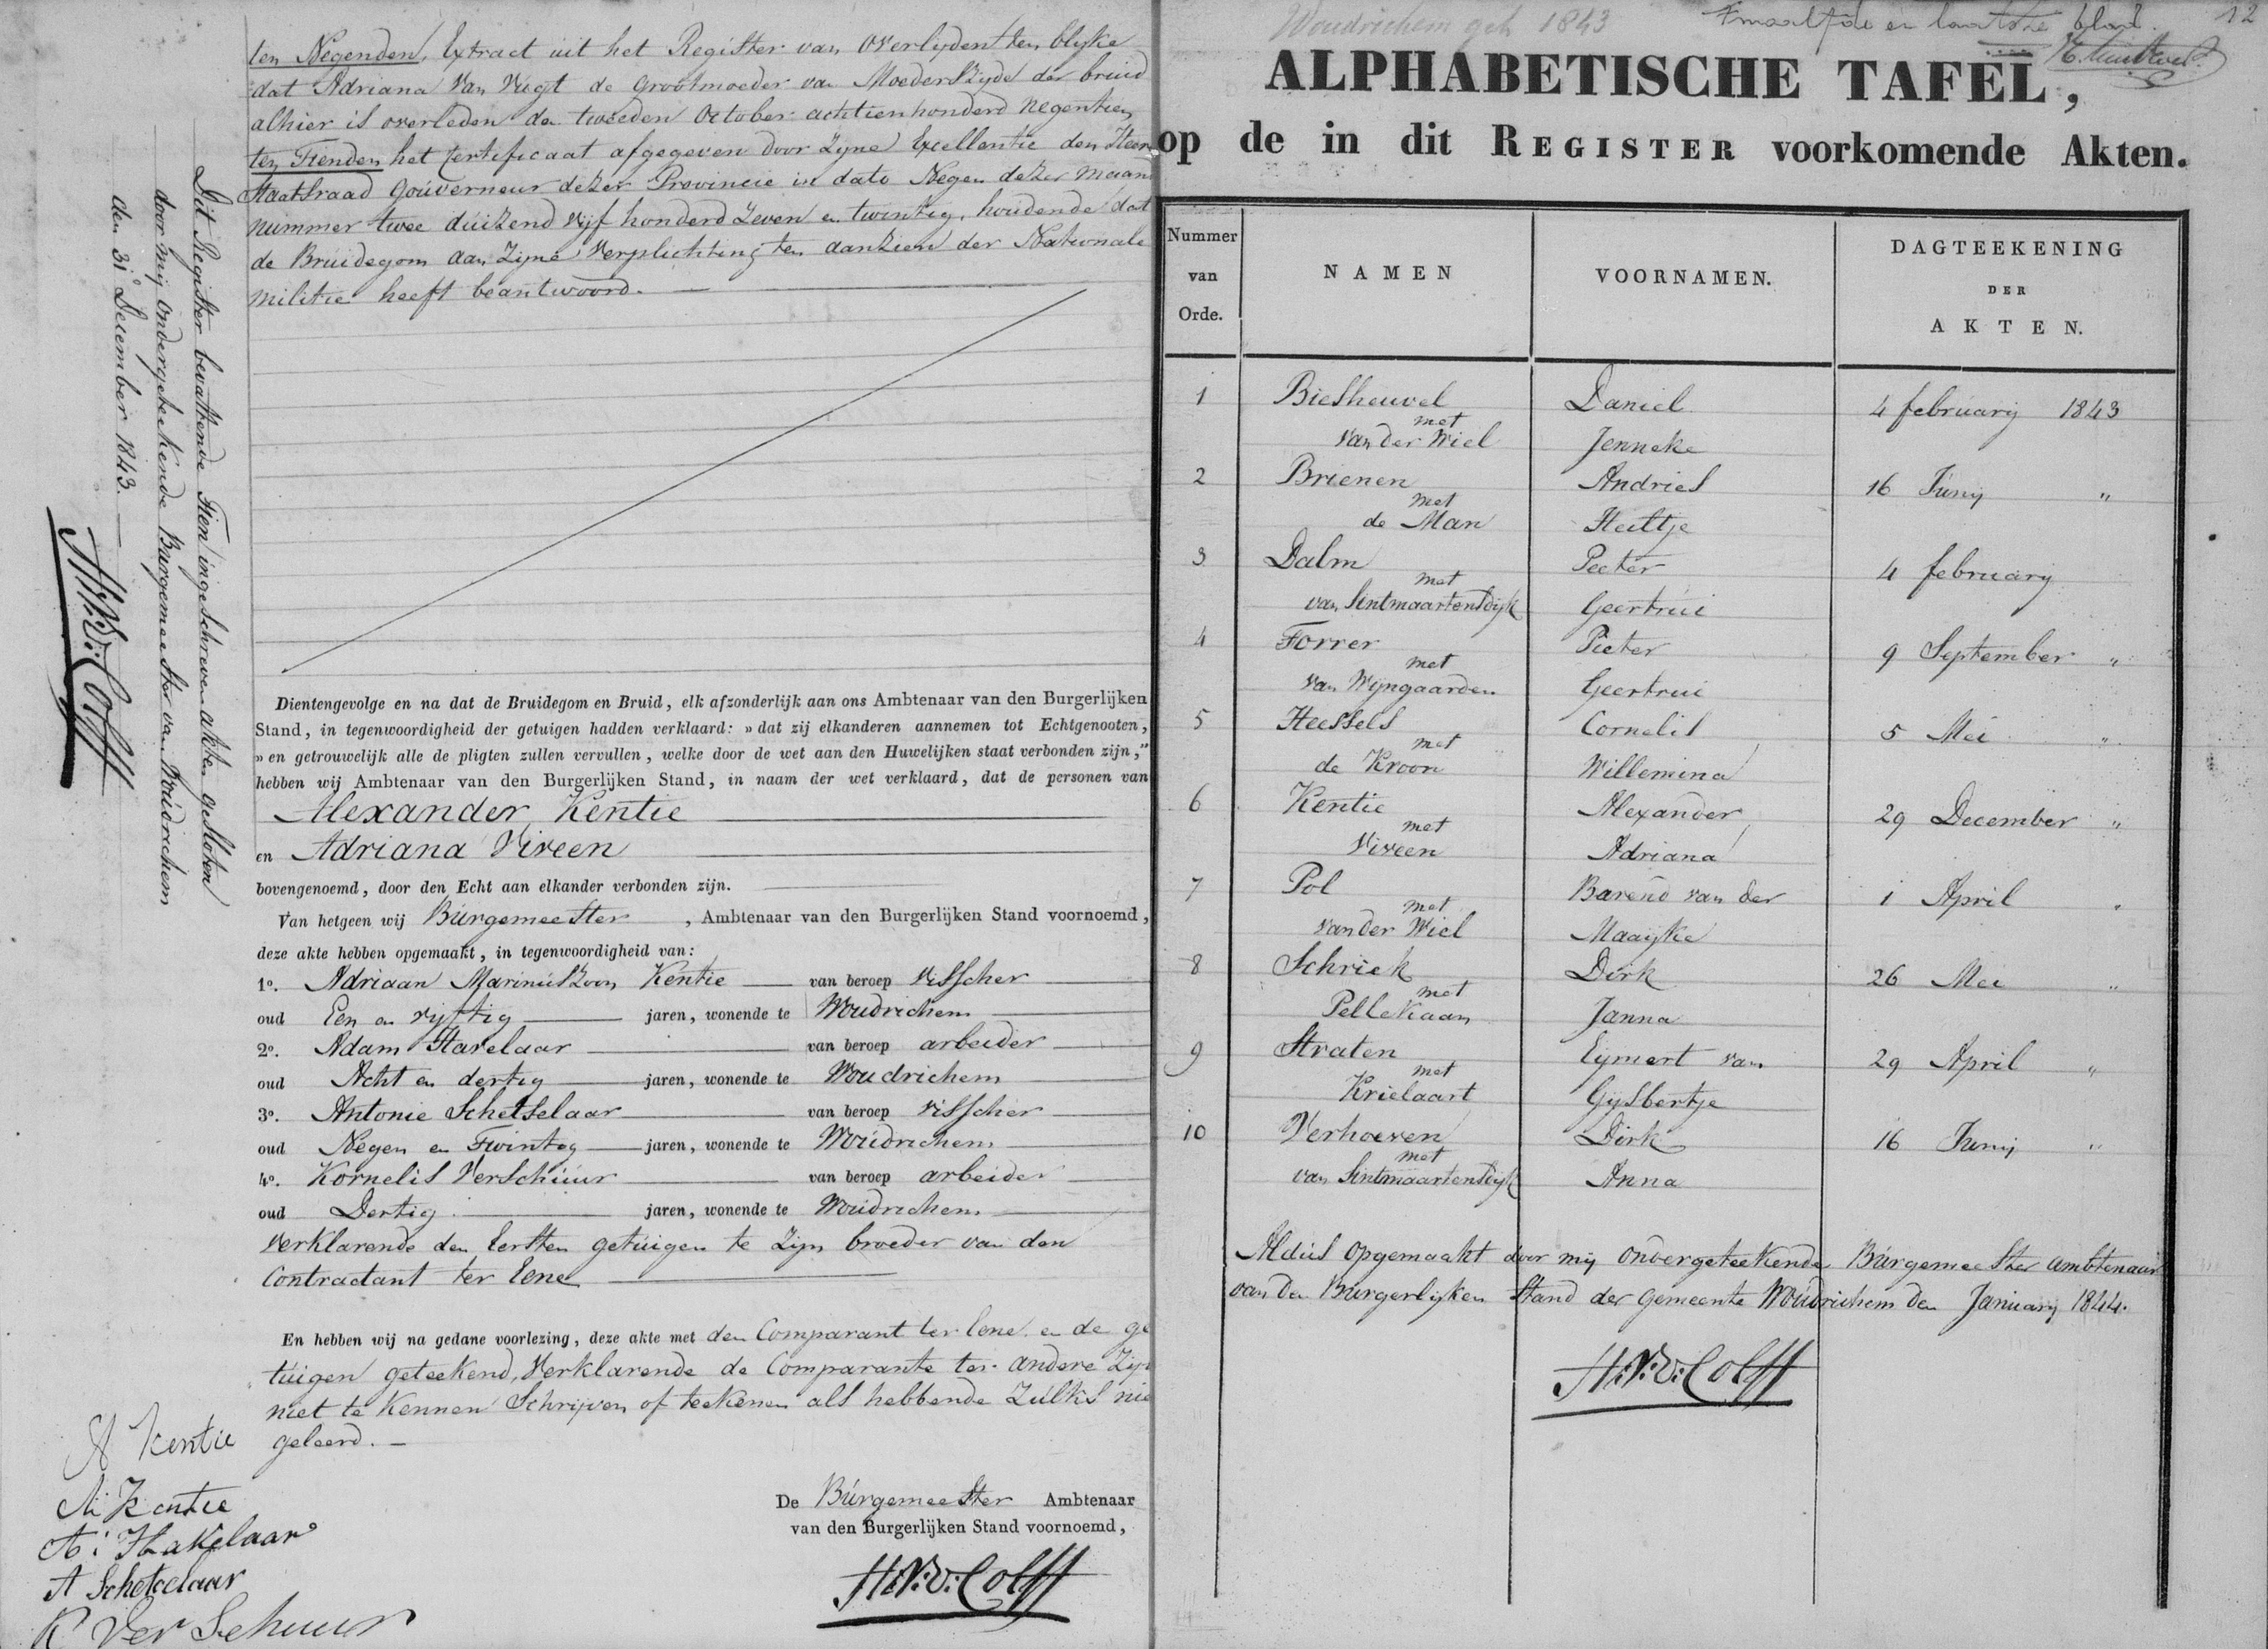 ten Negenden, Extract uit het Register van Overlyden ten blyke
dat Adriana van Vugt de Grootmoeder van Moederszyde der bruid
alhier is overleden den tweeden October achttienhonderd negentien
ten Tienden het certificaat afgegeven door Zyne Excellentie den Heer
Staatsraad Gouverneur dezer Provincie in dato Negen dezer maand
nummer twee duizend vyf honderd Zeven en twintig, houdende dat
de Bruidegom aan Zyne Verplichting ten aanzien der Nationale
Militie heeft beantwoord.
Dientengevolge en na dat de Bruidegom en Bruid, elk afzonderlijk aan ons Ambtenaar van den Burgerlijken
Stand, in tegenwoordigheid der getuigen hadden verklaard: » dat zij elkanderen aannemen tot Echtgenooten,
» en getrouwelijk alle de pligten zullen vervullen, welke door de wet aan den Huwelijken staat verbonden zijn,"
hebben wij Ambtenaar van den Burgerlijken Stand, in naam der wet verklaard, dat de personen van
Alexander Kentie
en Adriana Viveen
bovengenoemd, door den Echt aan elkander verbonden zijn.
Van hetgeen wij Burgemeester, Ambtenaar van den Burgerlijken Stand voornoemd,
deze akte hebben opgemaakt, in tegenwoordigheid van:
1o. Adriaan Marinuszoon Kentie van beroep Visscher
oud Een en vyftig jaren, wonende te Woudrichem
2o. Adam Havelaar van beroep arbeider
oud Acht en dertig jaren, wonende te Woudrichem
3o. Antonie Schetselaar van beroep visscher
oud Negen en Twintog jaren, wonende te Woudrichem
4o. Kornelis Verschuur van beroep arbeider
oud Dertig jaren, wonende te Woudrichem
Verklarende den Eersten getuigen te zyn broeder van den
Contractant ter Eene
En hebben wij na gedane voorlezing, deze akte met den Comparant ter Eene en de ge
tuigen geteekend, Verklarende de Comparante ter andere Zyde
niet te kennen Schryven of teekenen als hebbende Zulks nie
geleerd.
A Kentie
A: Kentie
A: Hakelaar
A Schetselaar
K Ver Schuur
De Burgemeester Ambtenaar
van den Burgerlijken Stand voornoemd,
H:N:v:Colff
Dit Register bevattende Tien ingeschreven akten gesloten
door my ondergeteekende Burgemeester van Woudrichem
den 31e December 1843.
H:N:v:Colff
Woudrichem geh 1843
Twaalfde en laatste blad.
12
ALPHABETISCHE TAFEL,
op de in dit REGISTER voorkomende Akten.
Nummer van Orde. NAMEN VOORNAMEN. DAGTEEKENING DER AKTEN.
1 Biesheuvel Daniel 4 february 1843
met
van der Wiel Jenneke
2 Brienen Andries 16 Juny "
met
de Man Heiltje
3 Dalm Peeter 4 february
met
van Sintmaartensdyk Geertrui
4 Forrer Pieter 9 September "
met
van Wyngaarden Geertrui
5 Heessels Cornelis 5 Mei "
met
de Kroon Willemina
6 Kentie Alexander 29 December "
met
Viveen Adriana
7 Pol Barend van der 1 April "
met
van der Wiel Maayke
8 Schriek Dirk 26 Mei "
met
Pellekaan Janna
9 Straten Eymert van 29 April "
met
Krielaart Gysbertje
10 Verhoeven Dirk 16 Juny "
met
van Sintmaartensdyk Anna
Aldus opgemaakt door my ondergeteekende Burgemeester ambtenaar
van den Burgerlyken Stand der gemeente Woudrichem den January 1844.
H:N:v:Colff